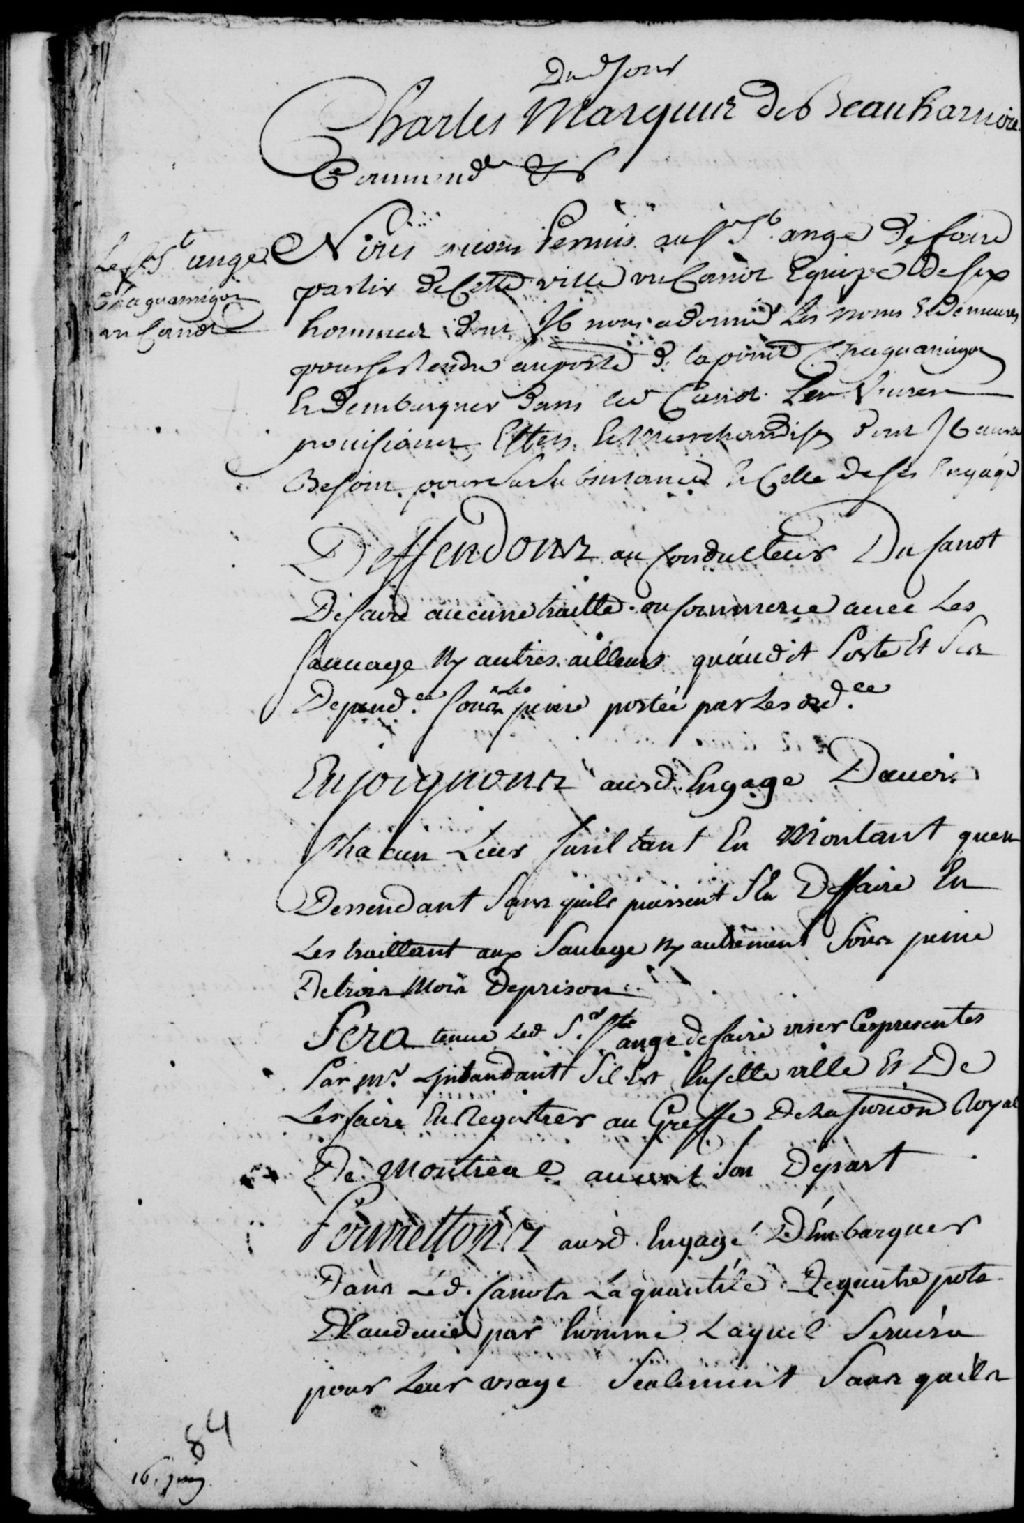 Dud Jour
Charles Marquis de Beauharnois
Command. &c
Le Sr. St ange
Chaguamigon
un Canot
Nous avons Permis au Sr. St ange De faire
partir de Cette ville un Canot Equipé de six
hommes dont Il nous a donné les noms & demeures
pour se rendre au poste de la pointe Chaguamigon
Et d'embarquer dans led Canot les vivres
provisions Et les Marchandises dont Il aura
Besoin pour sa subsistance & Celle de ses Engagé
Deffendons au Conducteur Du Canot
De faire aucune traitte ou Commerce avec Les
sauvage ny autres ailleurs qu'audit Poste Et Ses
Depend.ces sous les peine portée par Les ord.ce
Enjoignons ausd. Engage D'avoir
Chacun Leur fusil tant En Montant quen
Dessendant Sans quils puissent s'En Deffaire En
Les traittant aux Sauvage ny autrement Sous peine
De trois Mois De prison
Sera tenue led Sr. Ste ange de faire viser Les presentes
Par Mr. L'intandant s'il Est En Cette ville Et De
Les faire En Registrer au Greffe De La Jurion Royal
De Montreal avant Son Depart
Permettons ausd. Engagé D'Embarquer
Dans Led. Canots La quantité De quatre pots
D'Eaudevie par homme Laquel Servira
pour Leur usage Seulement Sans quils
84
16. juin